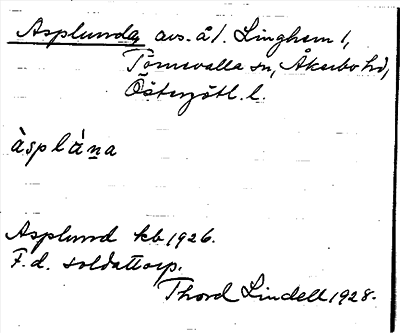 Asplunda, avs. å l. Linghem 1,
Törnevalla sn, Åkerbo hd,
Östergötl. l.
àsplána
Asplund kb 1926.
F.d. soldattorp.
Thord Lindell 1928.